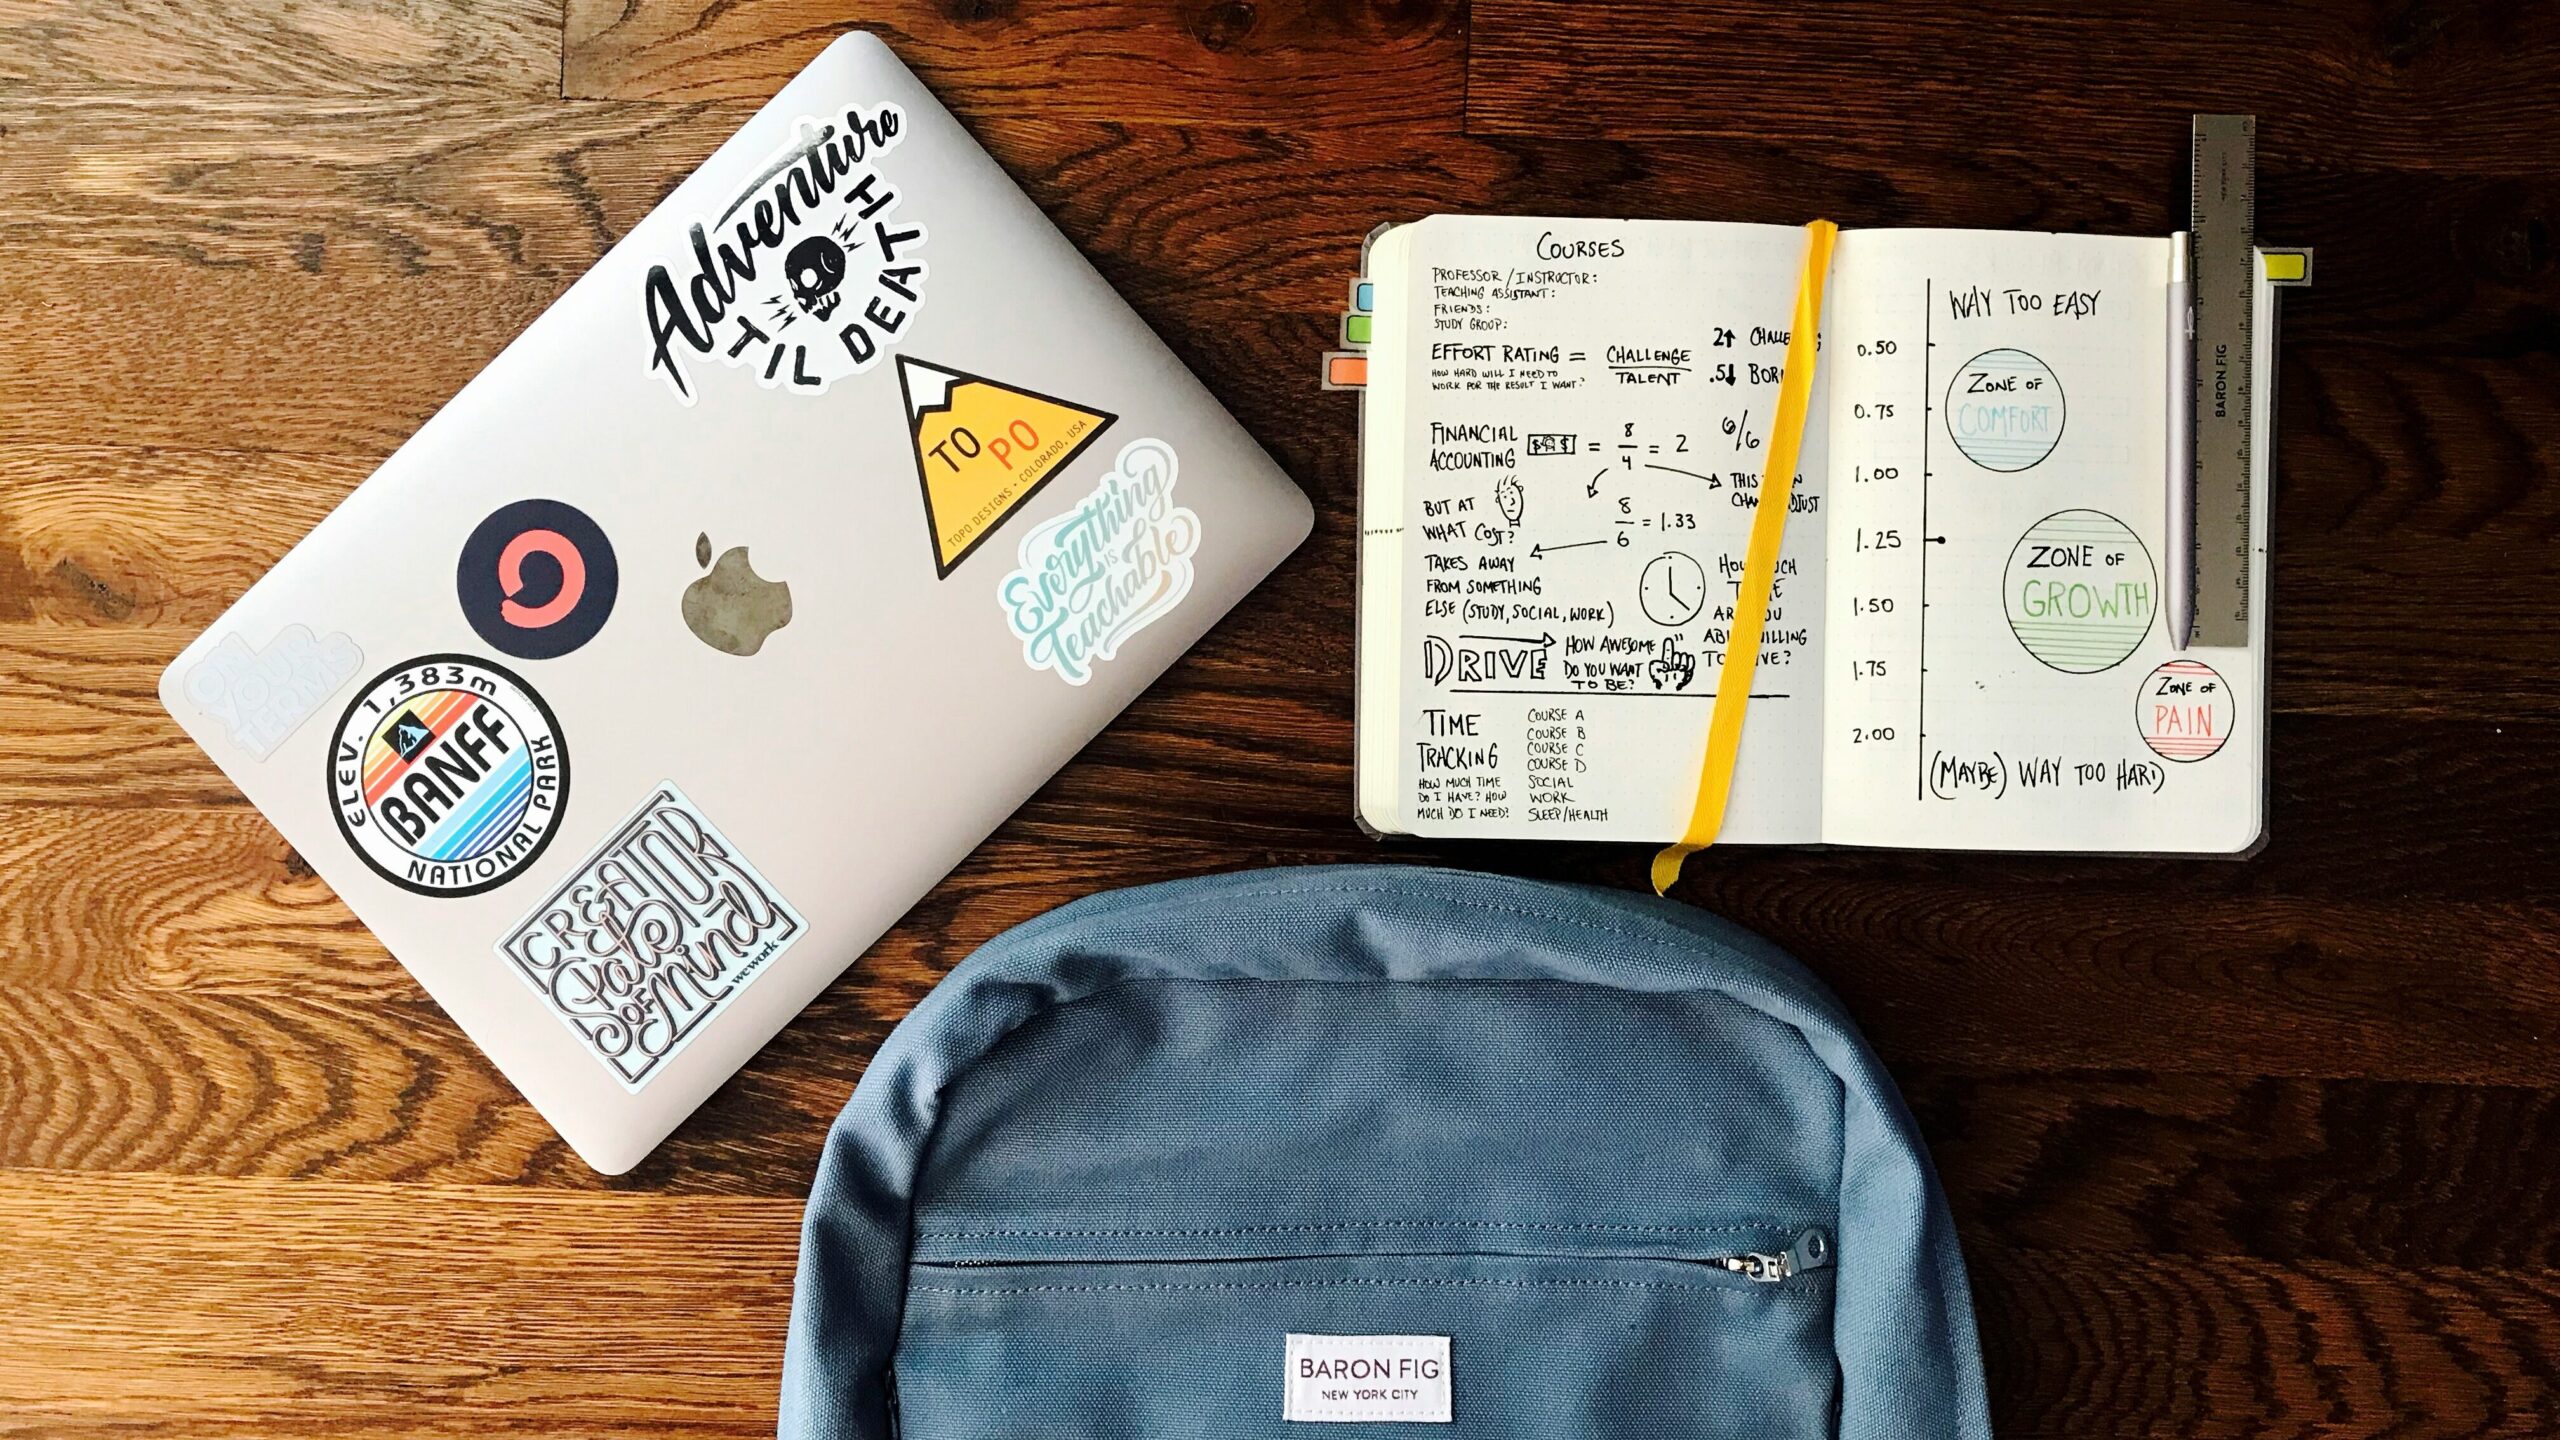 Adventure
TIL DEATH
TO PO
TOPO DESIGNS • COLORADO, USA
Everything
IS
Teachable
ON
YOUR
TERMS
ELEV. 1,383m
BANFF
NATIONAL PARK
CREATOR
State
OF
Mind
wework
COURSES
PROFESSOR/INSTRUCTOR:
TEACHING ASSISTANT:
FRIENDS:
STUDY GROUP:
EFFORT RATING = CHALLENGE / TALENT
HOW HARD WILL I NEED TO
WORK FOR THE RESULT I WANT?
2↑
.5↓
FINANCIAL
ACCOUNTING
$ $ = 8/4 = 2
6/6
THIS
BUT AT
WHAT COST?
8/6 = 1.33
TAKES AWAY
FROM SOMETHING
ELSE (STUDY, SOCIAL, WORK)
DRIVE
HOW AWESOME
DO YOU WANT
TO BE?
TIME
TRACKING
HOW MUCH TIME
DO I HAVE? HOW
MUCH DO I NEED?
COURSE A
COURSE B
COURSE C
COURSE D
SOCIAL
WORK
SLEEP/HEALTH
WAY TOO EASY
0.50
0.75
1.00
1.25
1.50
1.75
2.00
ZONE OF
COMFORT
ZONE OF
GROWTH
ZONE OF
PAIN
(MAYBE) WAY TOO HARD
BARON FIG
BARON FIG
NEW YORK CITY